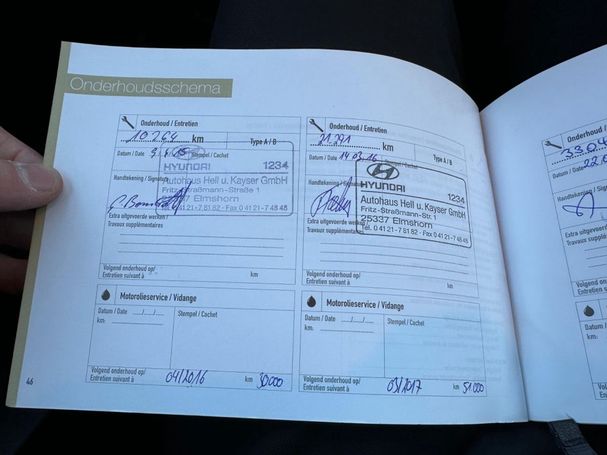 Onderhoudsschema
Onderhoud / Entretien
10264 km
Type A / B
Datum / Date
Stempel / Cachet
HYUNDAI 1234
Handtekening / Signature
Autohaus Hell u. Kayser GmbH
Fritz-Straßmann-Straße 1
25337 Elmshorn
Tel. 0 41 21-7 81 82 · Fax 0 41 21-7 48 48
Extra uitgevoerde werken /
Travaux supplémentaires
Volgend onderhoud op/
Entretien suivant à
km
Motorolieservice / Vidange
Datum / Date
Stempel / Cachet
km:
Volgend onderhoud op/
Entretien suivant à 04/2016 km 30000
Onderhoud / Entretien
21291 km
Type A / B
Datum / Date 14.03.16 Stempel / Cachet
HYUNDAI 1234
Handtekening / Signature
Autohaus Hell u. Kayser GmbH
Fritz-Straßmann-Str. 1
25337 Elmshorn
Tel. 0 41 21-7 81 82 · Fax 0 41 21-7 48 48
Extra uitgevoerde werken /
Travaux supplémentaires
Volgend onderhoud op/
Entretien suivant à
km
Motorolieservice / Vidange
Datum / Date
Stempel / Cachet
km:
Volgend onderhoud op/
Entretien suivant à 03/2017 km 51000
46
Onderhoud
3304
Datum / Date
Handtekening /
Extra uitgevoerde
Travaux supplé
Volgend onderh
Entretien suivan
Moto
Datum / Date
km:
Volgend onderh
Entretien suivan